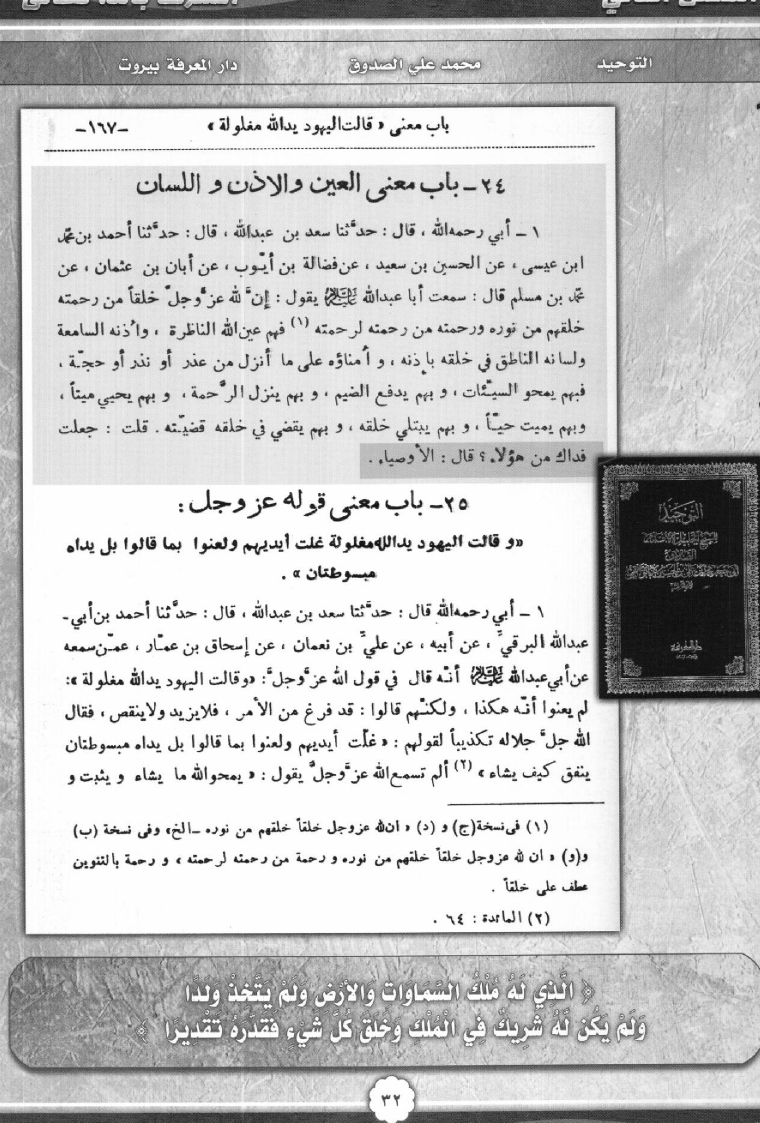 التوحيد
محمد علي الصدوق
دار المعرفة بيروت
باب معنى « قالت اليهود يدالله مغلولة »
-١٦٧-
٢٤ – باب معنى العين والاذن و اللسان
١ – أبي رحمه‌الله ، قال : حدَّثنا سعد بن عبدالله ، قال : حدَّثنا أحمد بن محمّد
ابن عيسى ، عن الحسين بن سعيد ، عن فضالة بن أيّوب ، عن أبان بن عثمان ، عن
محمّد بن مسلم قال : سمعت أبا عبدالله عليه السلام يقول : إنَّ لله عزَّوجلَّ خلقاً من رحمته
خلقهم من نوره ورحمته من رحمته لرحمته (١) فهم عين‌الله الناظرة ، واُذنه السامعة
ولسانه الناطق في خلقه بإذنه ، و اُمناؤه على ما أنزل من عذر أو نذر أو حجّة ،
فبهم يمحو السيّئات ، و بهم يدفع الضيم ، و بهم ينزل الرَّحمة ، و بهم يحيي ميتاً ،
وبهم يميت حيّاً ، و بهم يبتلي خلقه ، و بهم يقضي في خلقه قضيّته . قلت : جعلت
فداك من هؤلاء ؟ قال : الأوصياء .
٢٥ – باب معنى قوله عز وجل :
«و قالت اليهود يدالله مغلولة غلت أيديهم ولعنوا بما قالوا بل يداه
مبسوطتان » .
١ – أبي رحمه‌الله قال : حدَّثنا سعد بن عبدالله ، قال : حدَّثنا أحمد بن أبي-
عبدالله البرقيِّ ، عن أبيه ، عن عليِّ بن نعمان ، عن إسحاق بن عمّار ، عمّن سمعه
عن أبي عبدالله عليه السلام أنّه قال في قول الله عزَّوجلَّ : «وقالت اليهود يدالله مغلولة »:
لم يعنوا أنّه هكذا ، ولكنّهم قالوا : قد فرغ من الأمر ، فلا يزيد ولا ينقص ، فقال
الله جلَّ جلاله تكذيباً لقولهم : « غلّت أيديهم ولعنوا بما قالوا بل يداه مبسوطتان
ينفق كيف يشاء » (٢) ألم تسمع الله عزَّوجلَّ يقول : « يمحوالله ما يشاء و يثبت و
(١) في نسخة (ج) و (د) « ان‌لله عزوجل خلقاً خلقهم من نوره –الخ» وفى نسخة (ب)
و(و) « ان لله عزوجل خلقاً خلقهم من نوره و رحمة من رحمته لرحمته ، و رحمة بالتنوين
عطف على خلقاً .
(٢) المائدة : ٦٤ .
التوحيد
﴿ الَّذِي لَهُ مُلْكُ السَّمَاوَاتِ وَالأَرْضِ وَلَمْ يَتَّخِذْ وَلَدًا
وَلَمْ يَكُن لَّهُ شَرِيكٌ فِي الْمُلْكِ وَخَلَقَ كُلَّ شَيْءٍ فَقَدَّرَهُ تَقْدِيرًا ﴾
٣٢